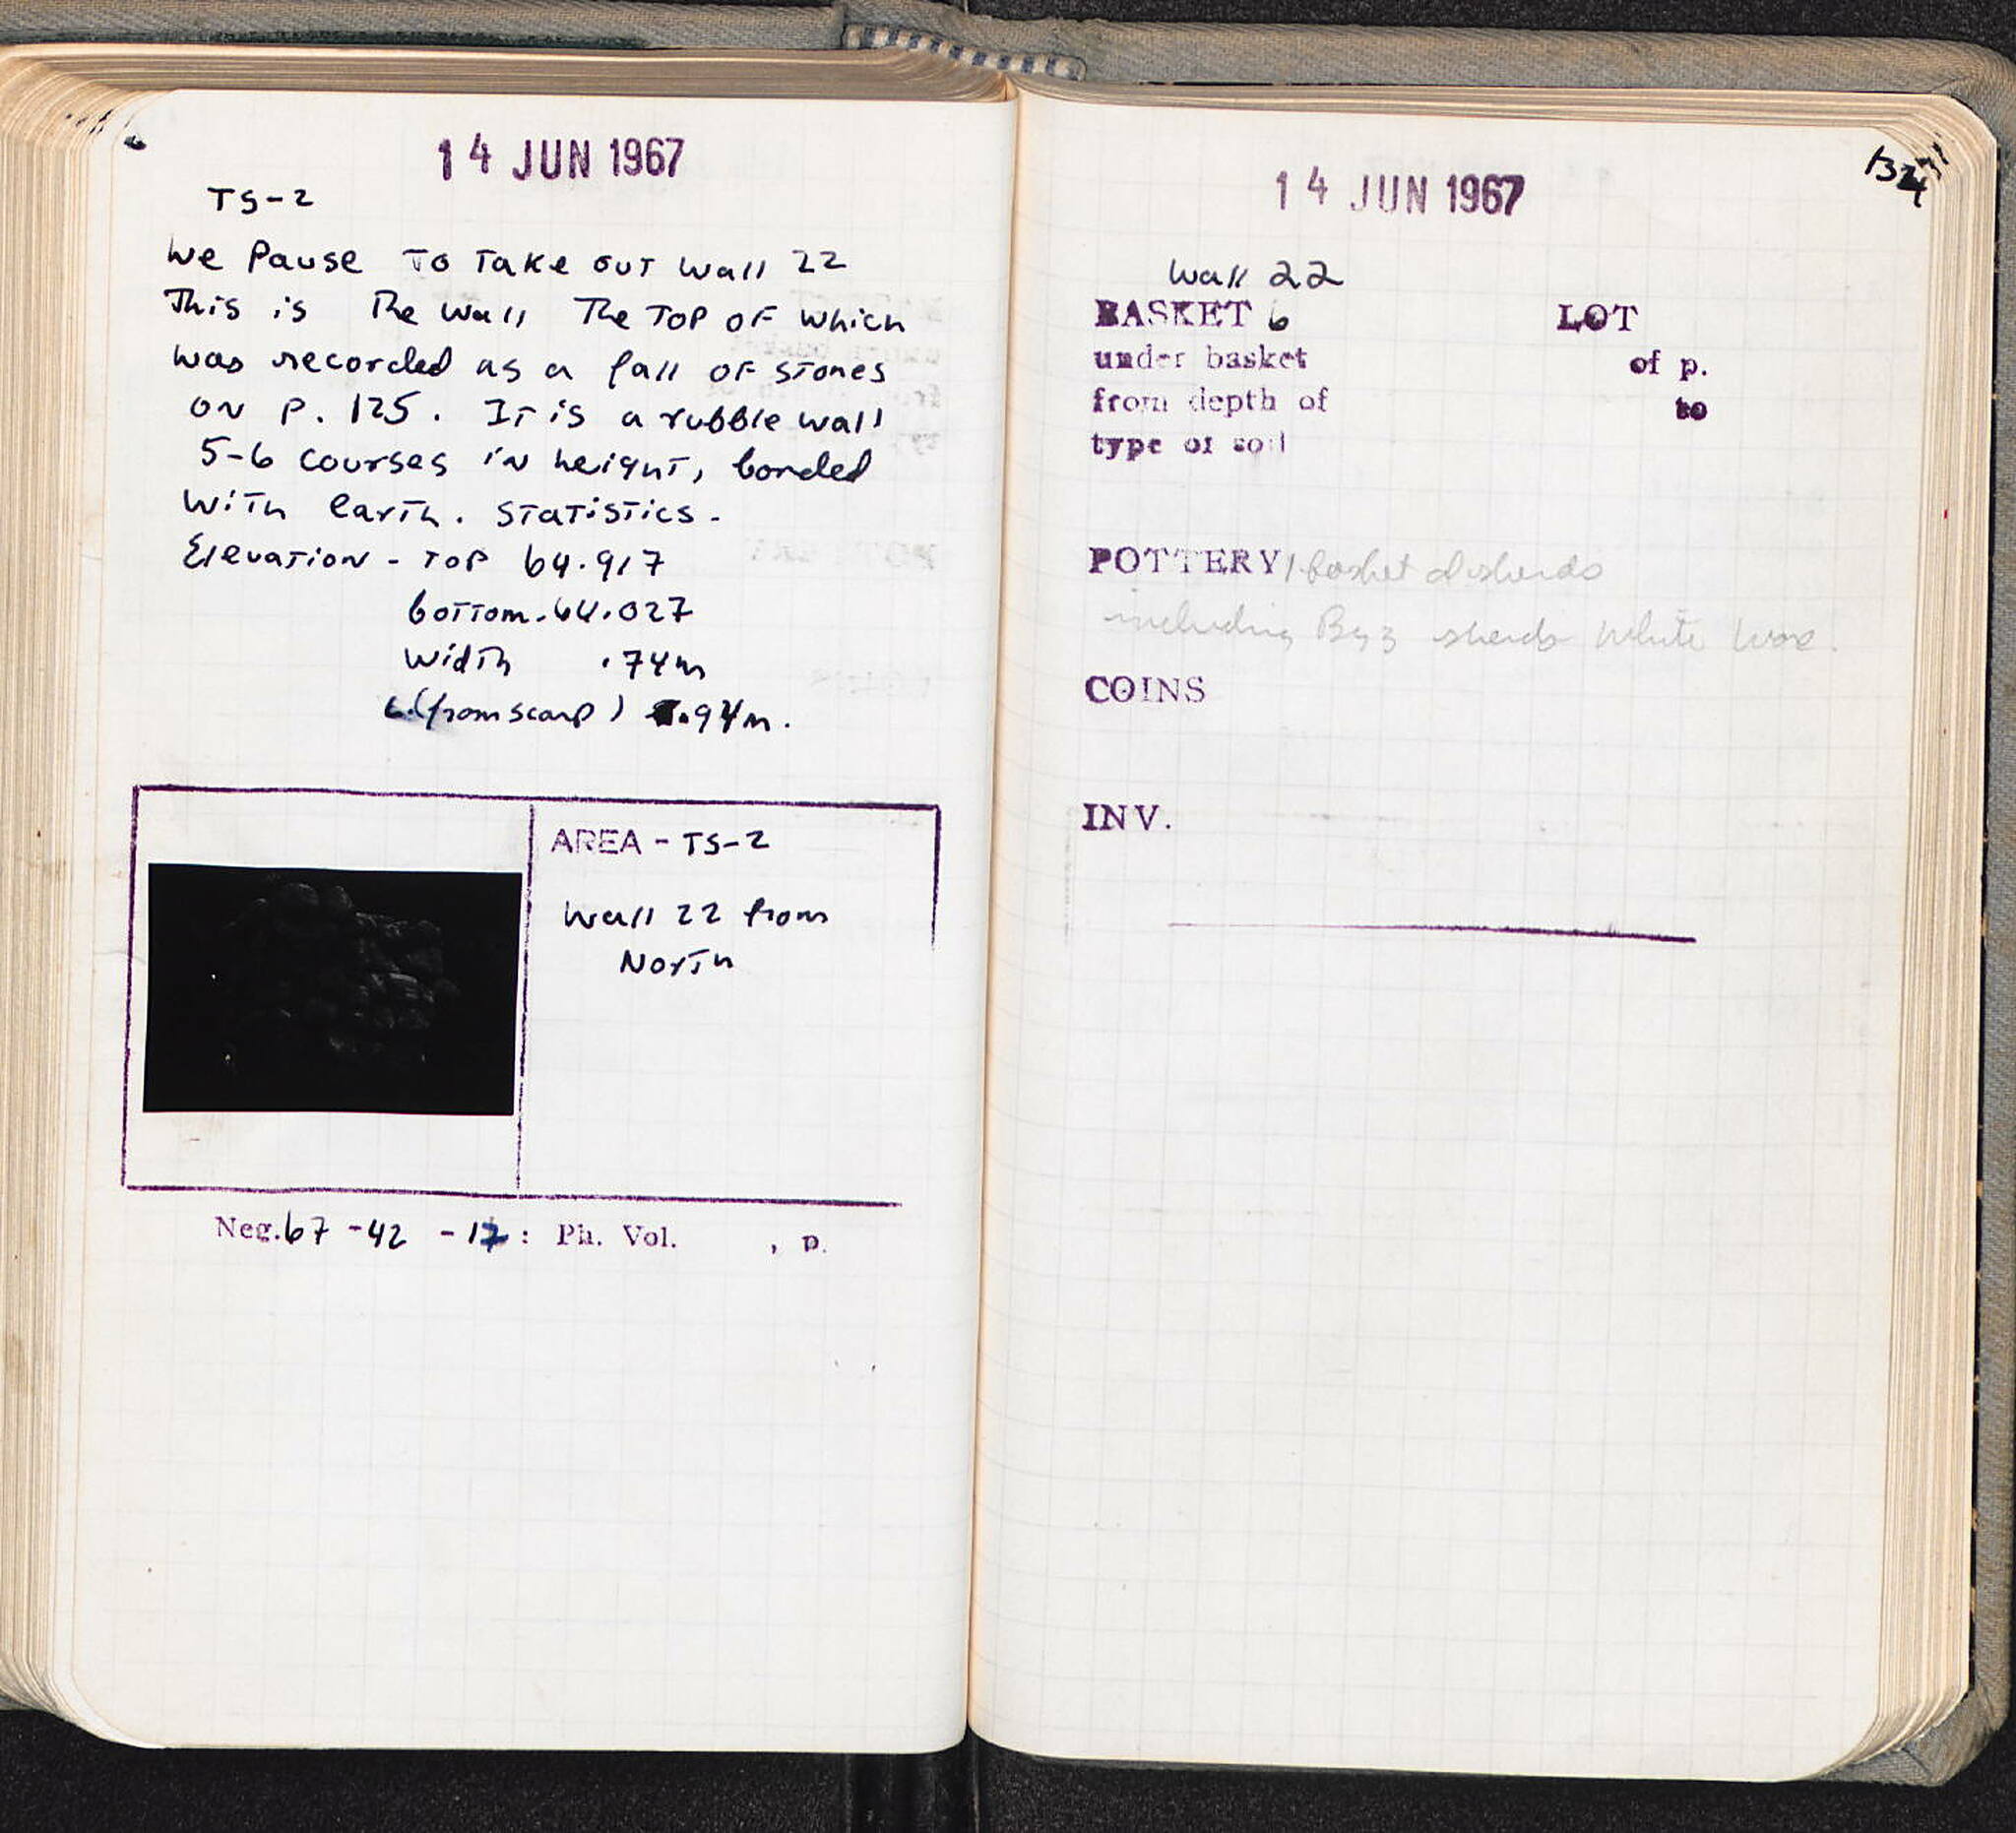 14 JUN 1967
TS-2
We Pause To Take out Wall 22
This is The Wall The Top of which
was recorded as a fall of stones
on p. 125. It is a rubble wall
5-6 courses in height, bonded
with earth. Statistics -
Elevation - Top 64.917
bottom. 64.027
Width .74m
L. (from scarp) .94m.
AREA - TS-2
Wall 22 from
North
Neg. 67 -42 -17 : Ph. Vol. , p.
14 JUN 1967
Wall 22
BASKET 6 LOT
under basket of p.
from depth of to
type of soil
POTTERY 1 basket of sherds
including Byz sherds White Ware.
COINS
INV.